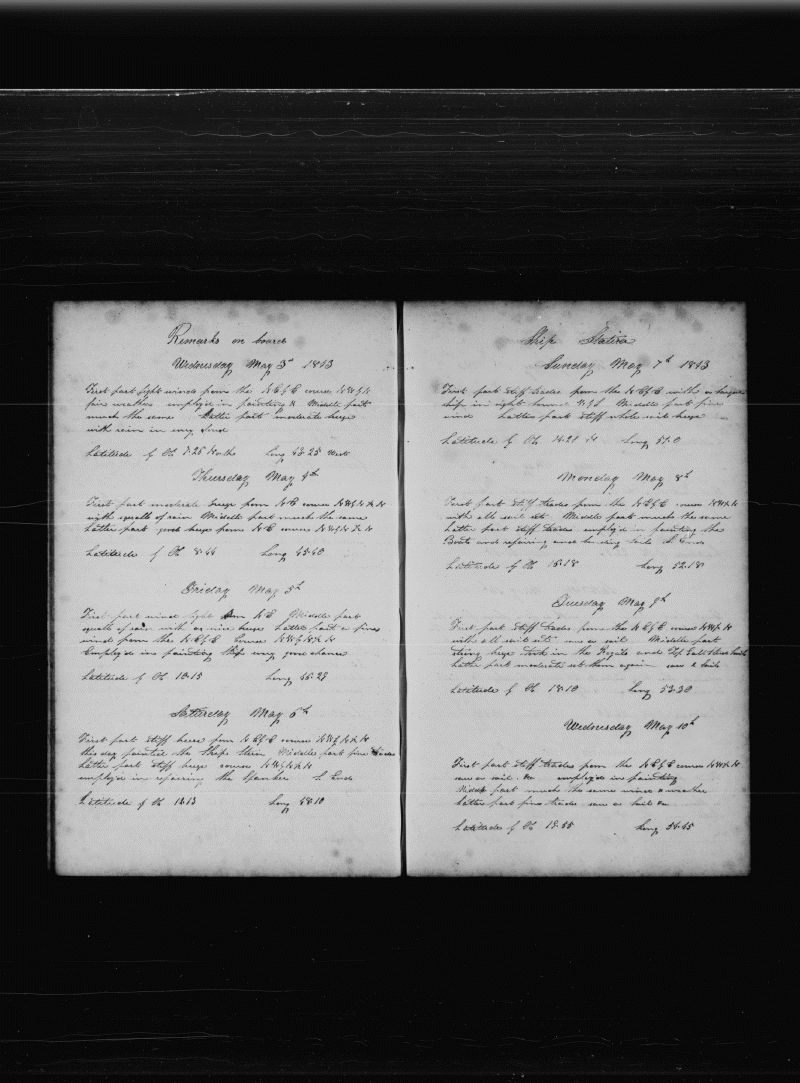 Remarks on board
Wednesday May 3d 1843
First part light winds from the N E & E course N W & N
fine weather employed in painting & Middle part
much the same Latter part moderate breeze
with rain in very
Latitude by Ob 7.25 North Long 43.25 West
Thursday May 4th
First part moderate breeze from N E course N W & N
with squalls of rain Middle part much the same
Latter part good breeze from N E course
Latitude by Ob 8.44 Long 45.40
Friday May 5th
First part wind light from N E Middle part
squalls of rain with a nice breeze Latter part a fine
wind from the N E & E Course
Employed in painting Ship very good chance
Latitude by Ob 10.15 Long 46.29
Saturday May 6th
First part stiff breeze from N E & E course
this day painted the Ships Stern Middle part fine trades
Latter part stiff breeze course
employed in repairing the Spanker So Ends
Latitude by Ob Long 48.10
Ship Statira
Sunday May 7th 1843
First part stiff trades from the N E & E with a
ship in sight Middle part fine
wind Latter part stiff whole sail breeze
Latitude by Ob 14.21 N Long 51.0
Monday May 8th
First part stiff trades from the N E & E course
with all sail set Middle part much the same
Latter part stiff trades employed in painting the
Boats and repairing and bending sails So Ends
Latitude by Ob 16.18 Long 52.18
Tuesday May 9th
First part stiff trades from the N E & E course
with all sail set saw a sail Middle part
strong breeze took in the Royals and
Latter part moderate set them again saw 2 sails
Latitude by Ob 18.10 Long 53.30
Wednesday May 10th
First part stiff trades from the N E & E course
saw a sail employed in painting
Middle part much the same winds & weather
Latter part fine trades saw a sail
Latitude by Ob 19.55 Long 54.45